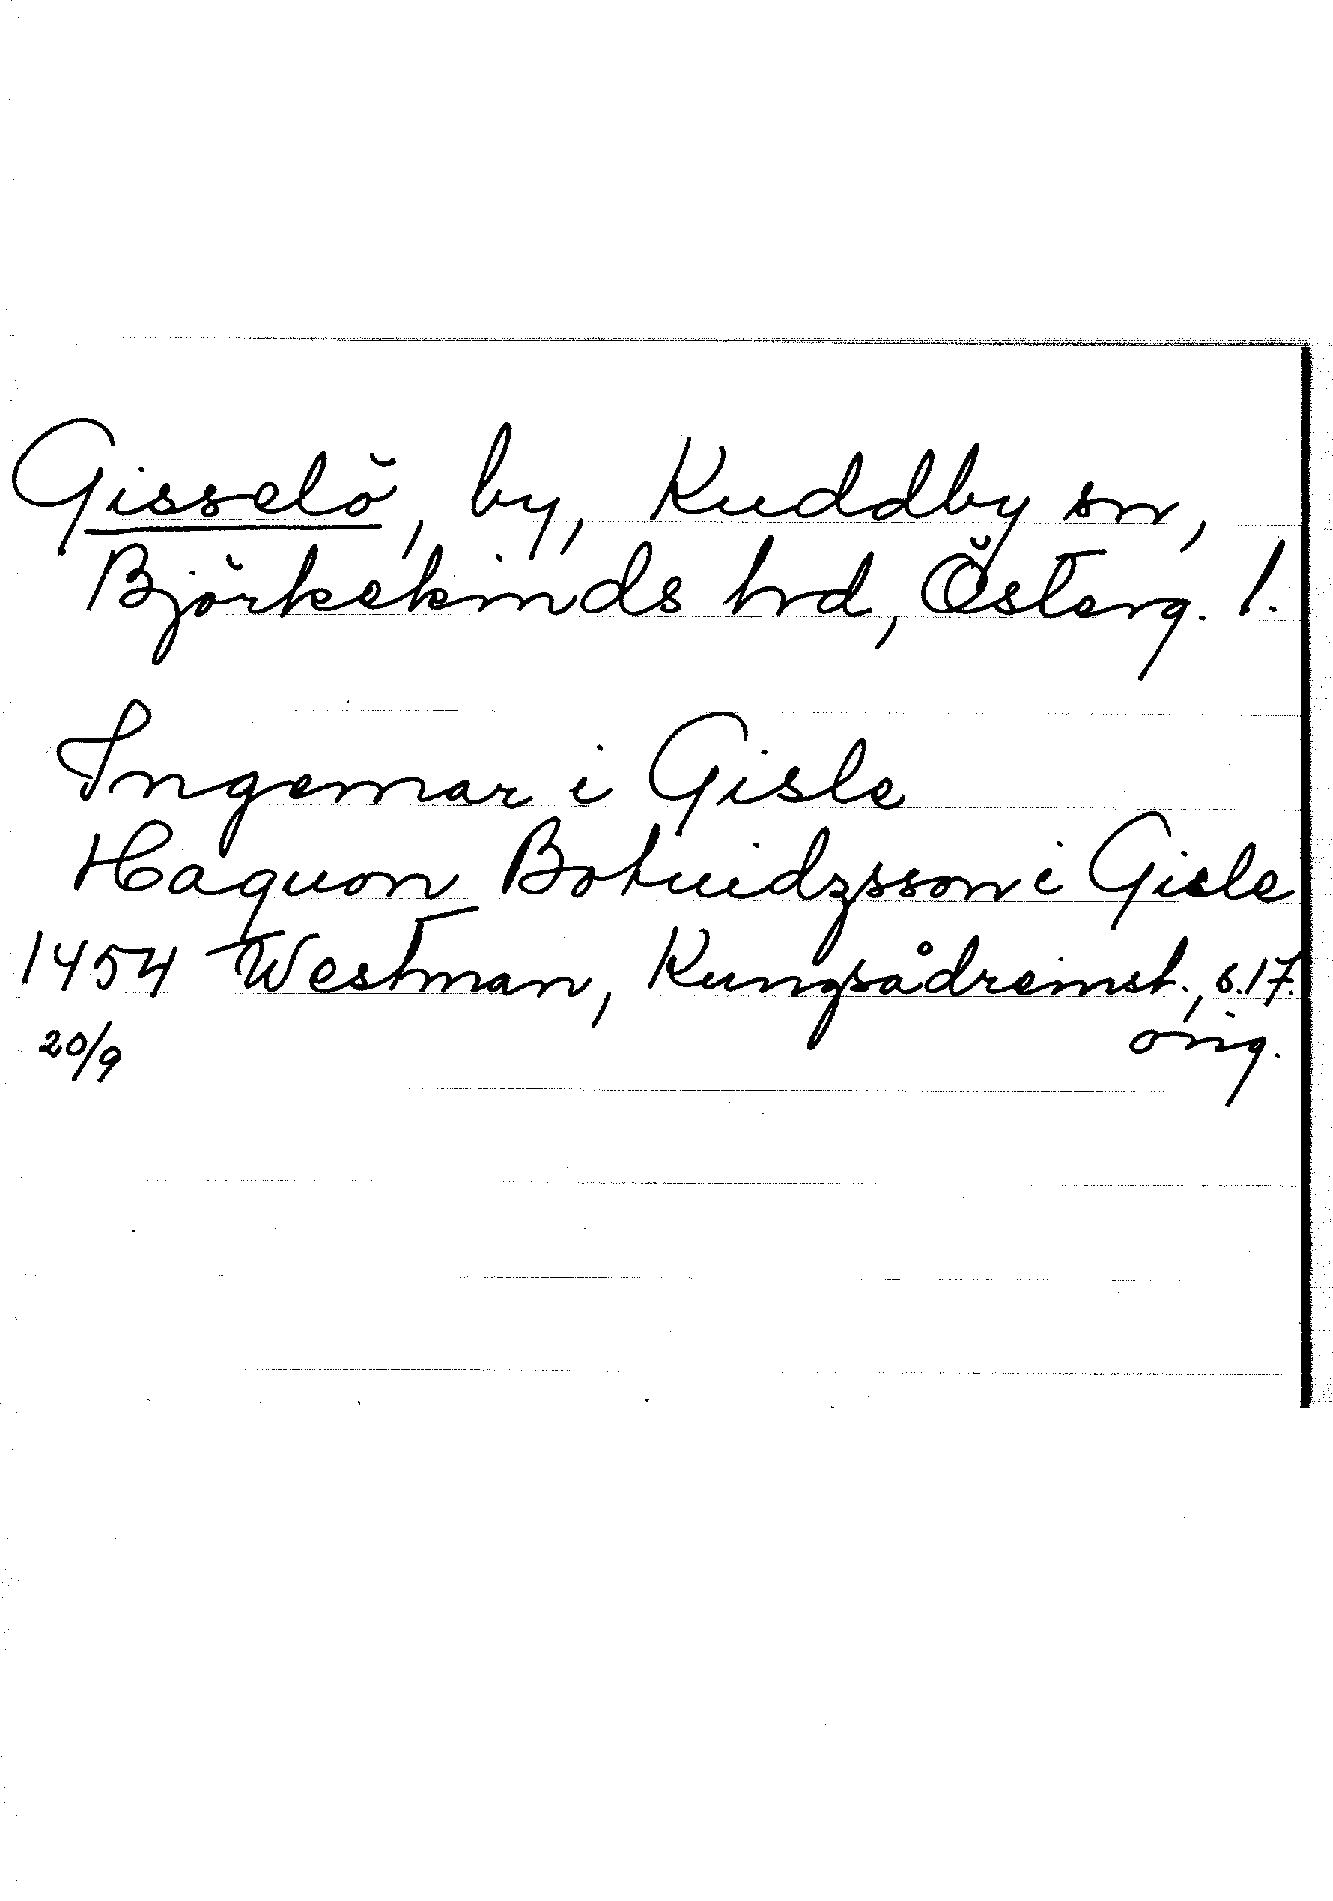 Gisselö, by, Kuddby sn,
Björkekinds hrd, Österg. l.
Ingemar i Gisle
Haquon Botuidzsson i Gisle
1454 Westman, Kungsådreinst., s. 17.
20/9 orig.